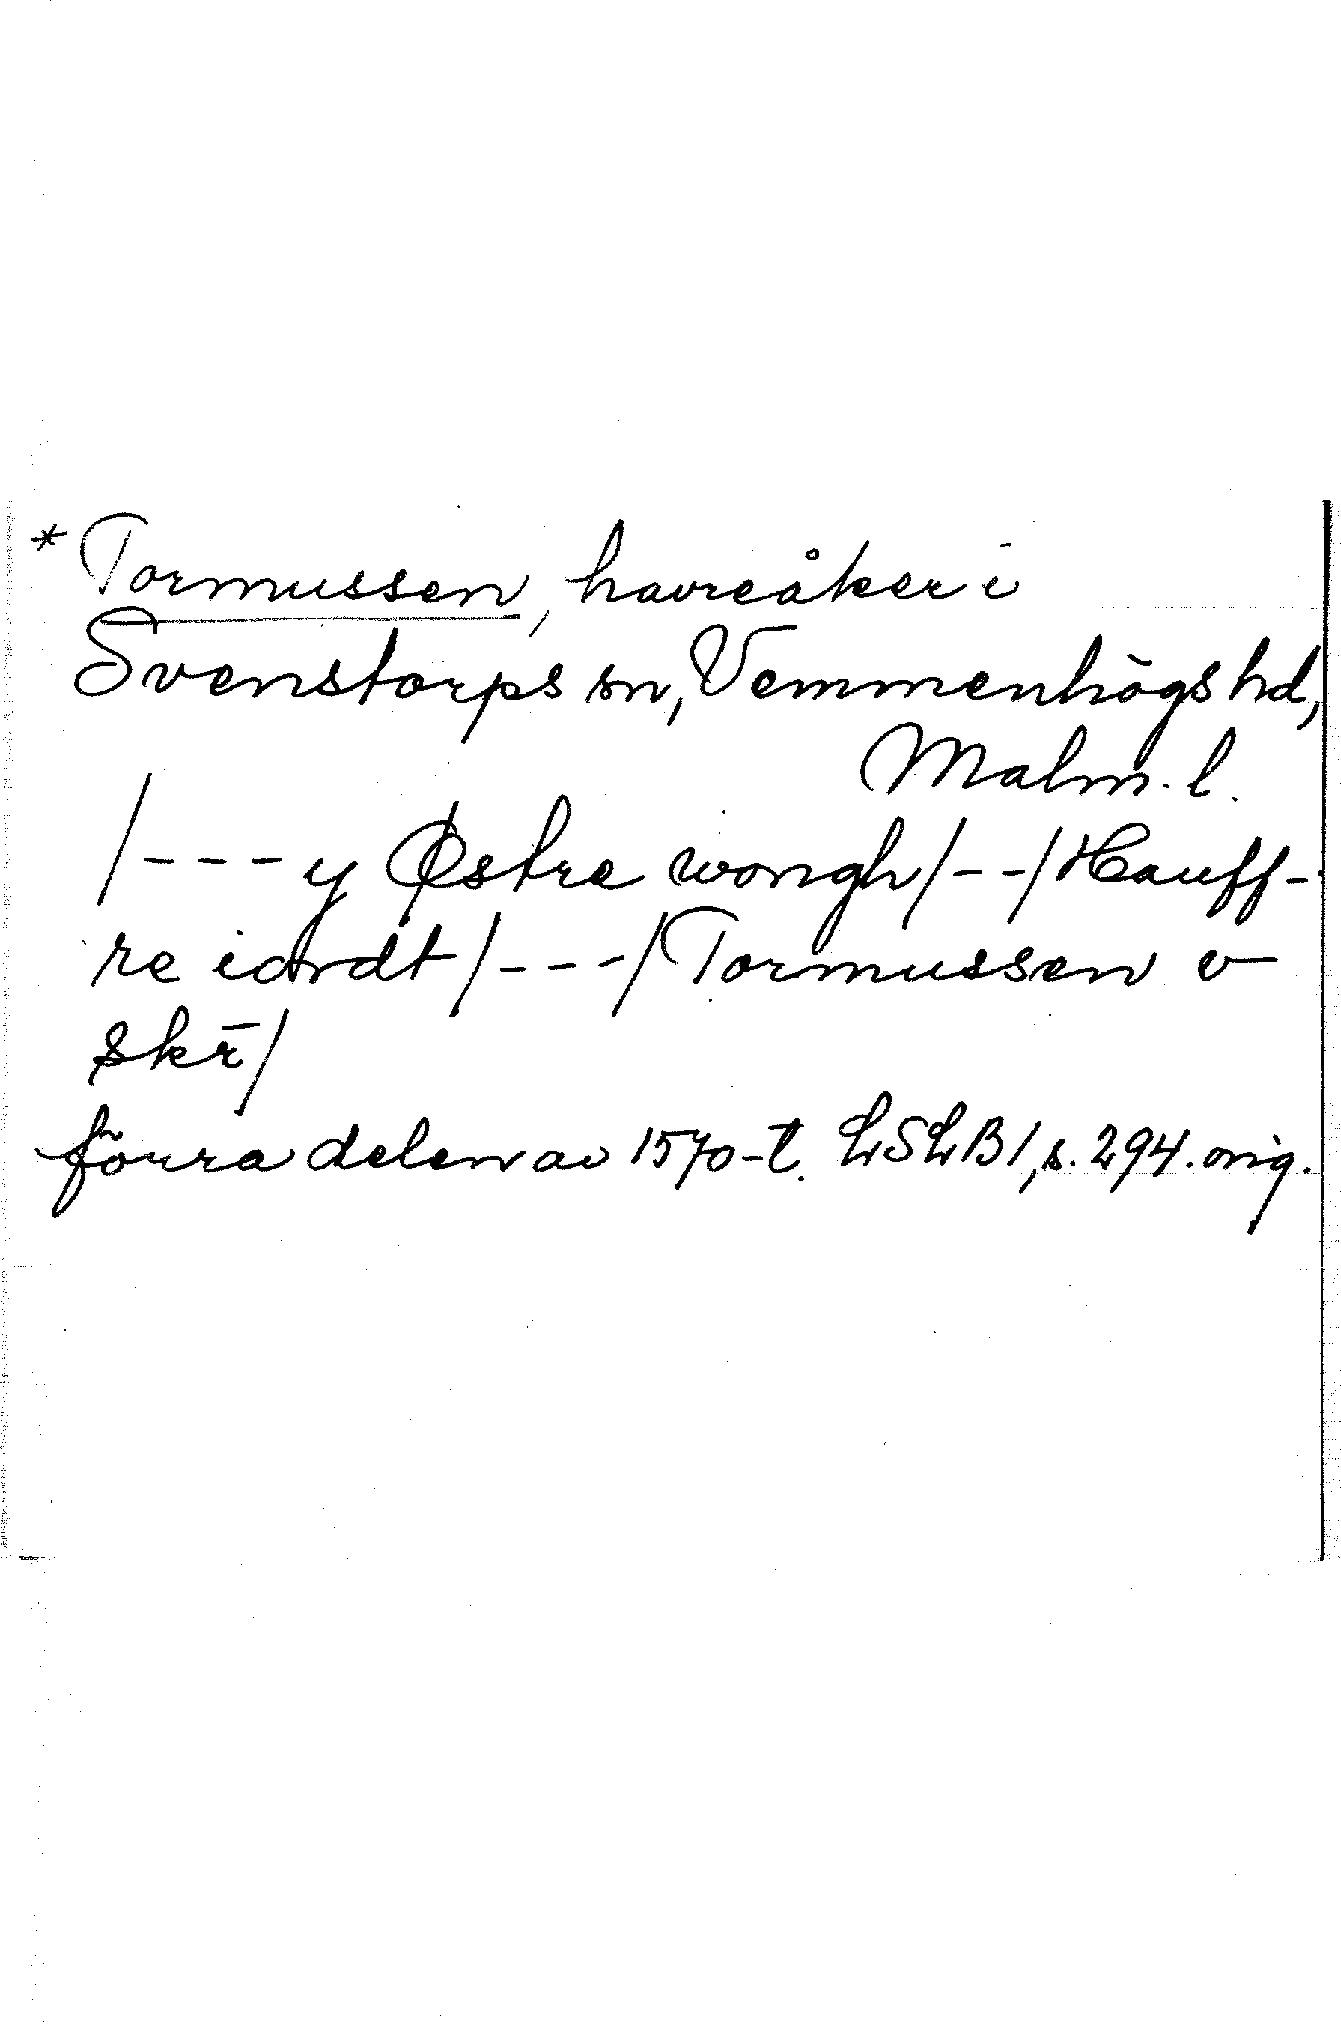 *Tormussen, havreåker i
Svenstorps sn, Vemmenhögs hd,
Malm. l.
/---y Østre wongh/--/Hauff-
re iordt/---/Tormussen v
skr̄/
förra delen av 1570-t. LSLB1, s. 294. orig.